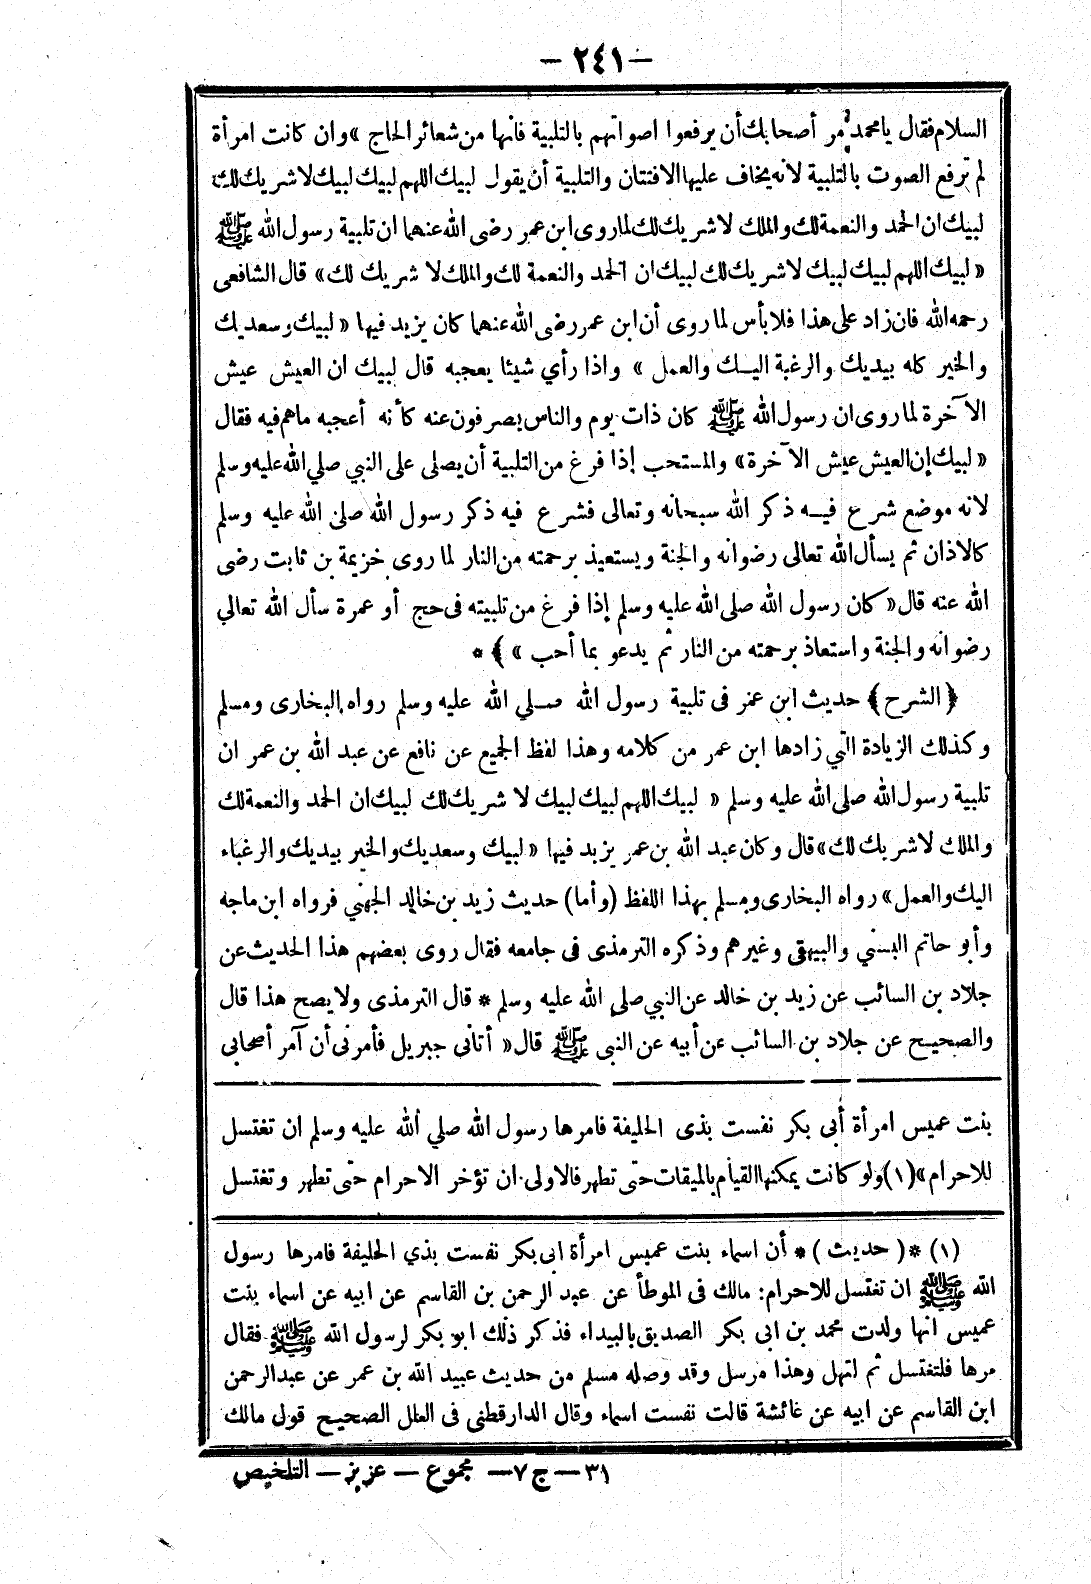 — ٢٤١ —
السلام فقال يا محمد مر أصحابك أن يرفعوا اصواتهم بالتلبية فانها من شعائر الحاج » وان كانت امرأة
لم ترفع الصوت بالتلبية لانه يخاف عليها الافتتان والتلبية أن يقول لبيك اللهم لبيك لبيك لا شريك لك
لبيك ان الحمد والنعمة لك والملك لا شريك لك لما روى ابن عمر رضى الله عنهما ان تلبية رسول الله ﷺ
« لبيك اللهم لبيك لبيك لا شريك لك لبيك ان الحمد والنعمة لك والملك لا شريك لك » قال الشافعى
رحمه الله فان زاد على هذا فلا بأس لما روى أن ابن عمر رضى الله عنهما كان يزيد فيها « لبيك وسعديك
والخير كله بيديك والرغبة اليك والعمل » واذا رأي شيئا يعجبه قال لبيك ان العيش عيش
الآخرة لما روى ان رسول الله ﷺ كان ذات يوم والناس يصرفون عنه كأنه أعجبه ماهم فيه فقال
« لبيك إن العيش عيش الآخرة » والمستحب إذا فرغ من التلبية أن يصلى على النبي صلي الله عليه وسلم
لانه موضع شرع فيه ذكر الله سبحانه وتعالى فشرع فيه ذكر رسول الله صلى الله عليه وسلم
كالاذان ثم يسأل الله تعالى رضوانه والجنة ويستعيذ برحمته من النار لما روى خزيمة بن ثابت رضى
الله عنه قال « كان رسول الله صلى الله عليه وسلم إذا فرغ من تلبيته فى حج أو عمرة سأل الله تعالي
رضوانه والجنة واستعاذ برحمته من النار ثم يدعو بما أحب » ﴾ *
﴿ الشرح ﴾ حديث ابن عمر فى تلبية رسول الله صلي الله عليه وسلم رواه البخارى ومسلم
وكذلك الزيادة التي زادها ابن عمر من كلامه وهذا لفظ الجميع عن نافع عن عبد الله بن عمر ان
تلبية رسول الله صلى الله عليه وسلم « لبيك اللهم لبيك لبيك لا شريك لك لبيك ان الحمد والنعمة لك
والملك لا شريك لك » قال وكان عبد الله بن عمر يزيد فيها « لبيك وسعديك والخير بيديك والرغباء
اليك والعمل » رواه البخارى ومسلم بهذا اللفظ (وأما) حديث زيد بن خالد الجهني فرواه ابن ماجه
وأبو حاتم البستي والبيهقى وغيرهم وذكره الترمذى فى جامعه فقال روى بعضهم هذا الحديث عن
جلاد بن السائب عن زيد بن خالد عن النبي صلي الله عليه وسلم * قال الترمذى ولا يصح هذا قال
والصحيح عن جلاد بن السائب عن أبيه عن النبى ﷺ قال « أتانى جبريل فأمرنى أن آمر أصحابى
بنت عميس امرأة أبى بكر نفست بذى الحليفة فامرها رسول الله صلي الله عليه وسلم ان تغتسل
للاحرام » (١) ولو كانت يمكنها القيام بالميقات حتى تطهر فالاولى ان تؤخر الاحرام حتى تطهر وتغتسل
(١) * ( حديث ) * أن اسماء بنت عميس امرأة ابى بكر نفست بذي الحليفة فامرها رسول
الله ﷺ ان تغتسل للاحرام: مالك فى الموطأ عن عبد الرحمن بن القاسم عن ابيه عن اسماء بنت
عميس انها ولدت محمد بن ابى بكر الصديق بالبيداء فذكر ذلك ابو بكر لرسول الله ﷺ فقال
مرها فلتغتسل ثم لتهل وهذا مرسل وقد وصله مسلم من حديث عبيد الله بن عمر عن عبد الرحمن
ابن القاسم عن ابيه عن عائشة قالت نفست اسماء وقال الدارقطنى فى العلل الصحيح قول مالك
٣١ — ج ٧ — مجموع — عزيز — التلخيص